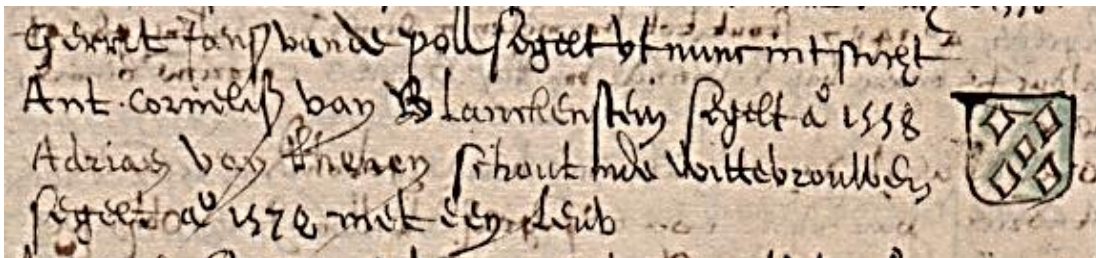 Gerrit Janß vande poll segelt ut nunc int sticht
Ant. Corneliß van Blanckenstein segelt aº 1558
Adrian van Rhenen schout inde Wittevrouwen
segelt aº 1578 met een leuw